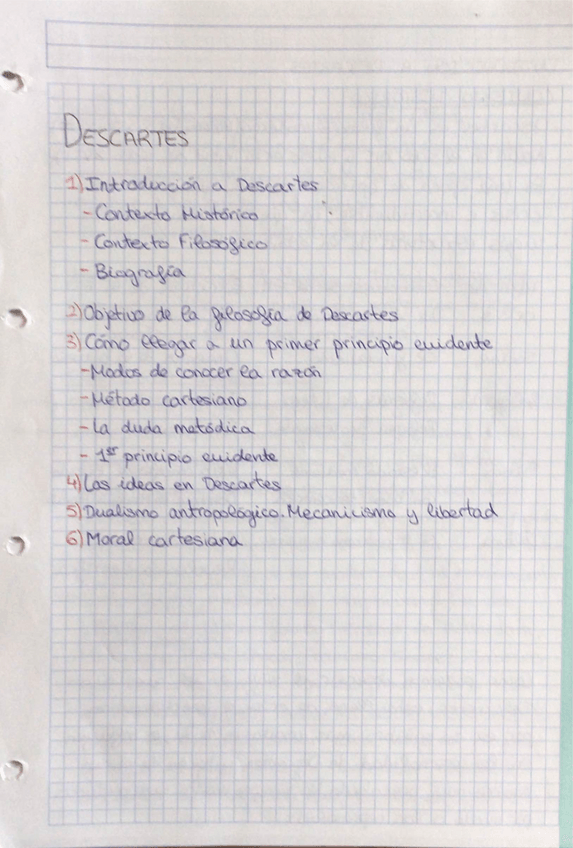 DESCARTES
1) Introducción a Descartes
- Contexto Histórico
- Contexto Filosófico
- Biografía
2) Objetivo de la filosofía de Descartes
3) Cómo llegar a un primer principio evidente
- Modos de conocer la razón
- Método cartesiano
- La duda metódica
- 1er principio evidente
4) Las ideas en Descartes
5) Dualismo antropológico. Mecanicismo y libertad
6) Moral cartesiana